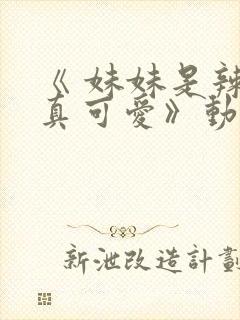 《妹妹是辣
真可愛》動
新泄改造計劃